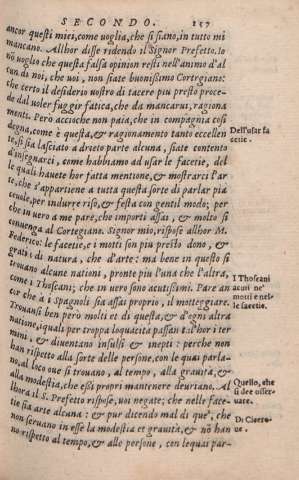 SECONDO. 157
ancor questi miei, come uoglia, che si siano, in tutto mi
mancano. Allhor disse ridendo il Signor Prefetto. Io
nō uoglio che questa falsa opinion resti nell'animo d'al
cun di noi, che uoi, non siate buonissimo Cortegiano:
che certo il desiderio uostro di tacere piu presto proce-
de dal uoler fuggir fatica, che da mancarui, ragiona
menti. Però accioche non paia, che in compagnia cosi
degna, come è questa, & ragionamento tanto eccellen
te, si sia lasciato a drieto parte alcuna, siate contento
d'insegnarci, come habbiamo ad usar le facetie, del
Dell'usar fa
cetie.
le quali hauete hor fatta mentione, & mostrarci l'ar
te, che s'appartiene a tutta questa sorte di parlar pia
ceuole, per indurre riso, & festa con gentil modo; per
che in uero a me pare, che importi assai, & molto si
conuenga al Cortegiano. Signor mio, rispose allhor M.
Federico: le facetie, e i motti son piu presto dono, &
gratia di natura, che d'arte: ma bene in questo si
trouano alcune nationi, pronte piu l'una che l'altra,
come i Thoscani; che in uero sono acutissimi. Pare an
I Thoscani
acuti ne'
motti e nel-
le facetie.
cor che a i Spagnoli sia assai proprio, il motteggiare.
Trouansi ben però molti et di questa, & d'ogni altra
natione, i quali per troppa loquacità passan tal'hor i ter
mini, & diuentano insulsi & inepti: perche non
han rispetto alla sorte delle persone, con le quai parla-
no, al loco oue si trouano, al tempo, alla grauità, &
alla modestia, che essi proprij mantenere deuriano. Al
Quello, che
si dee osser-
uare.
lhora il S. Prefetto rispose, uoi negate; che nelle face-
tie sia arte alcuna: & pur dicendo mal di que', che
non seruano in esse la modestia et grauità, & nō han
Di Cicero-
ne.
no rispetto al tempo, & alle persone, con lequai par-